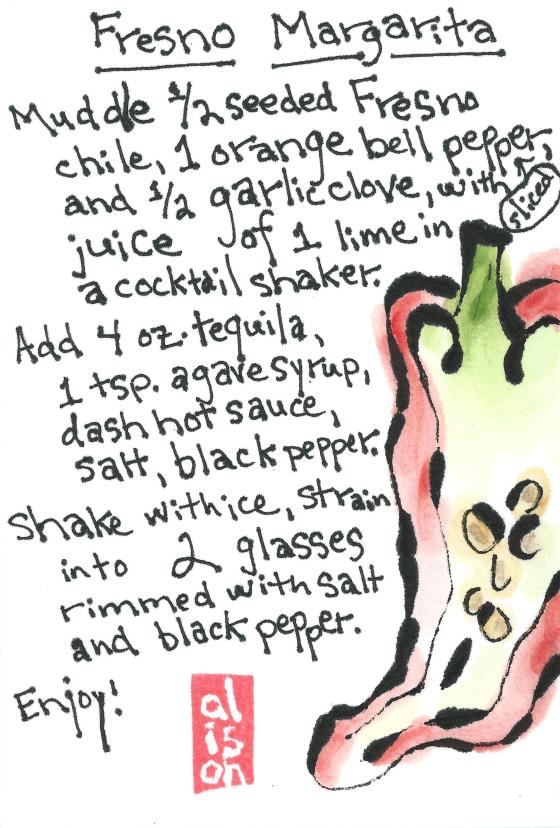 Fresno Margarita
Muddle 1/2 seeded Fresno
chile, 1 orange bell pepper,
sliced
and 1/2 garlic clove, with
juice of 1 lime in
a cocktail shaker.
Add 4 oz. tequila,
1 tsp. agave syrup,
dash hot sauce,
salt, black pepper.
Shake with ice, strain
into 2 glasses
rimmed with salt
and black pepper.
Enjoy!
al
is
on